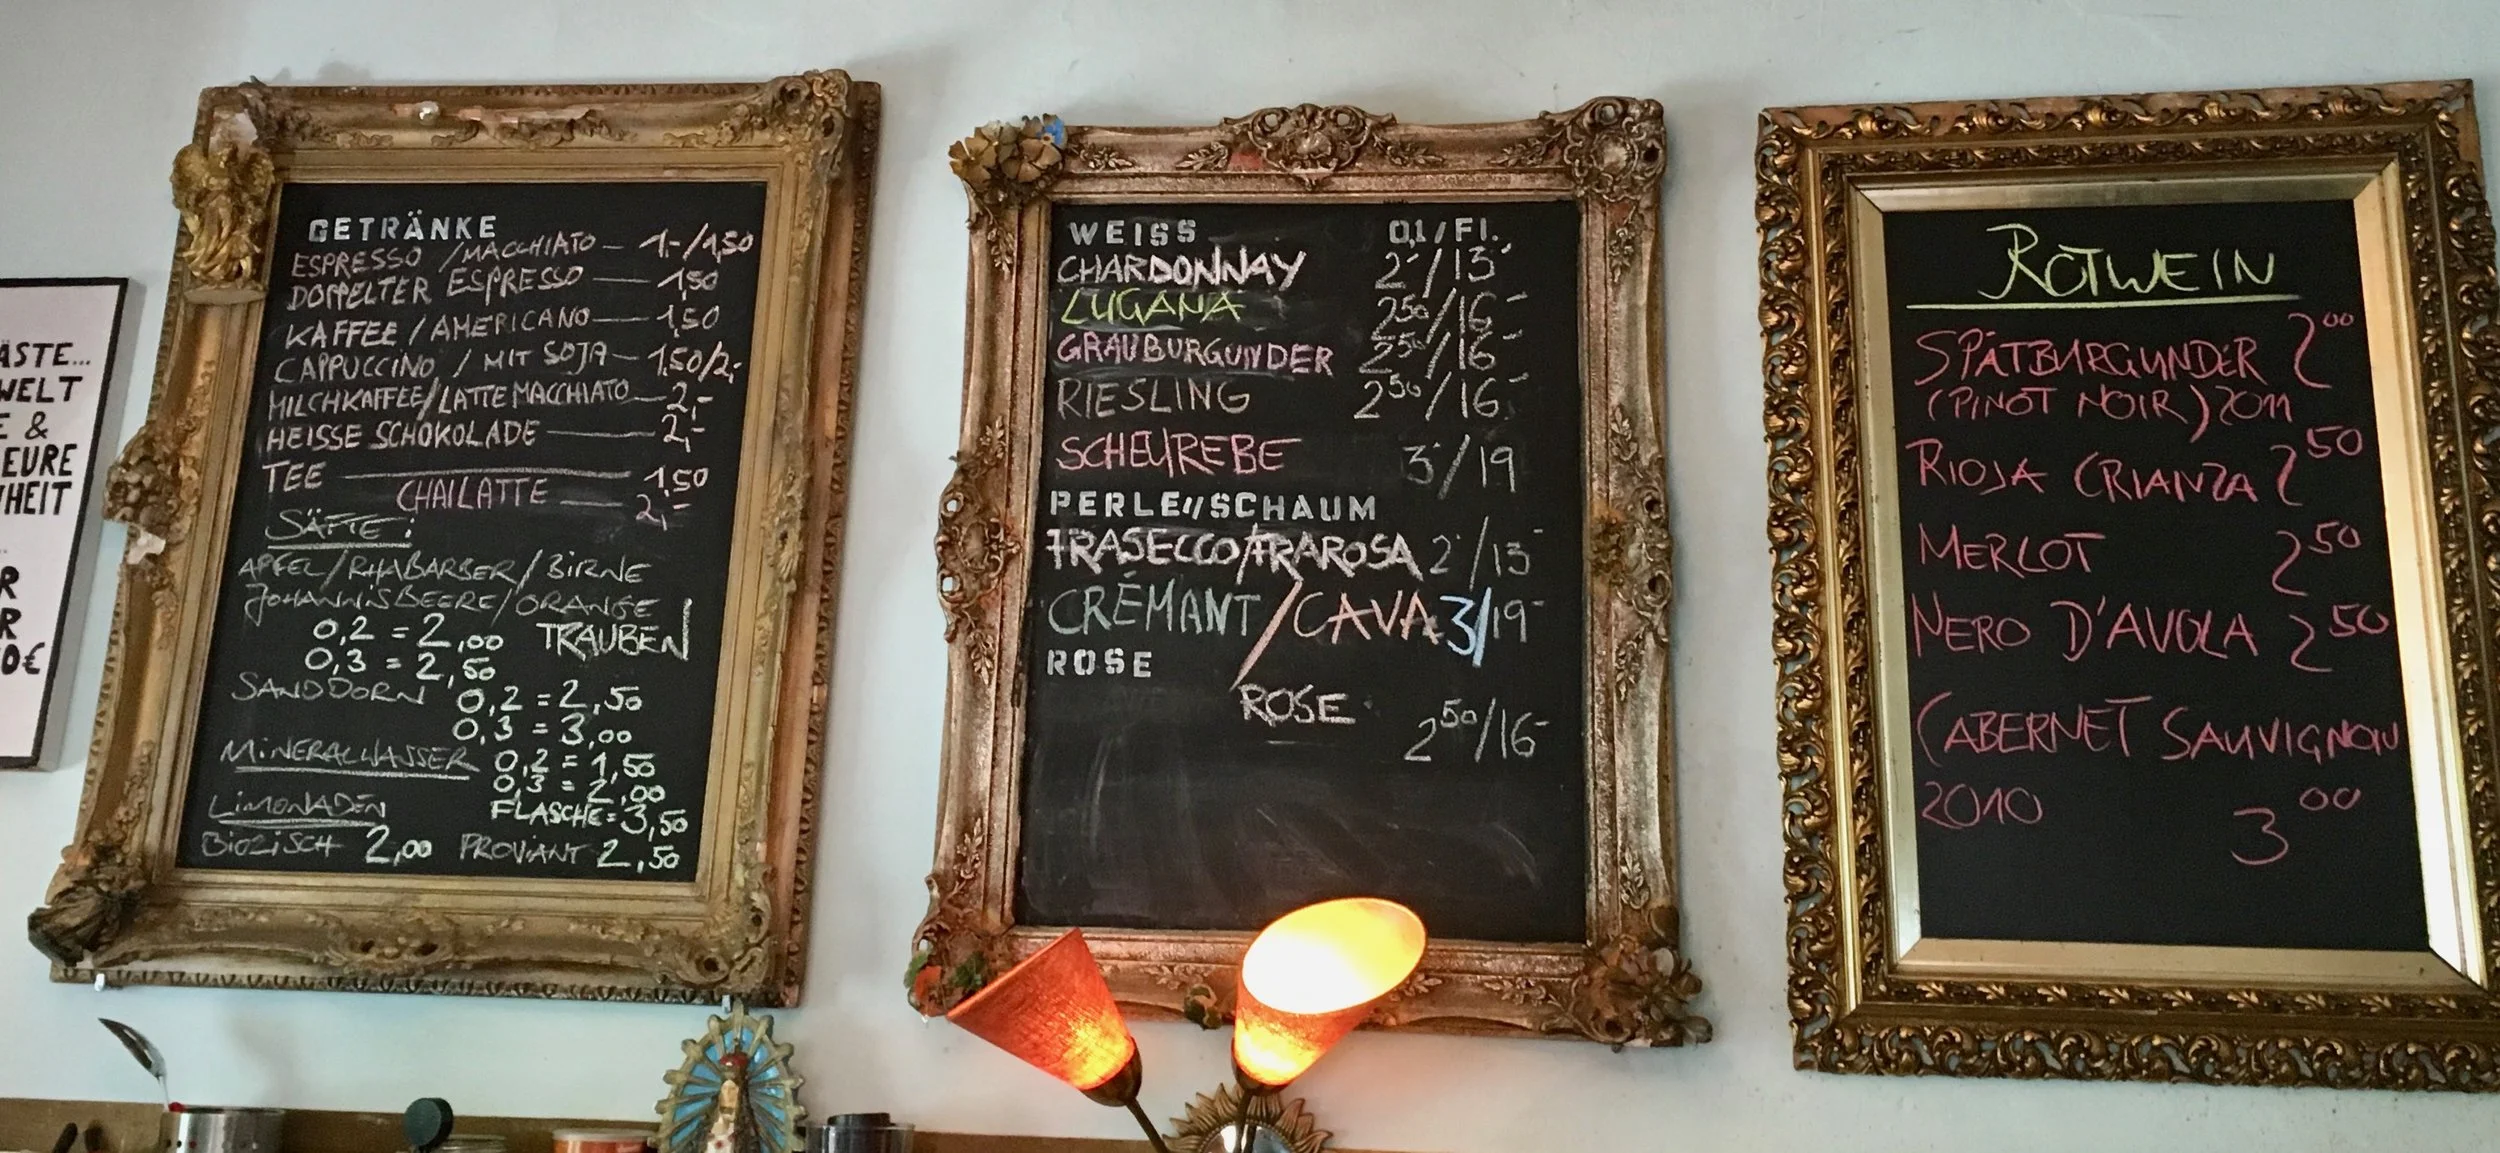 ÄSTE...
WELT
E &
EURE
HEIT
R
R
0€
GETRÄNKE
ESPRESSO / MACCHIATO — 1,-/1,50
DOPPELTER ESPRESSO — 1,50
KAFFEE / AMERICANO — 1,50
CAPPUCCINO / MIT SOJA — 1,50/2,-
MILCHKAFFEE/LATTE MACCHIATO — 2,-
HEISSE SCHOKOLADE — 2,-
TEE — 1,50
CHAILATTE — 2,-
SÄFTE:
APFEL/RHABARBER/BIRNE
JOHANNISBEERE/ORANGE
0,2 = 2,00 TRAUBEN
0,3 = 2,50
SANDDORN 0,2 = 2,50
0,3 = 3,00
MINERALWASSER 0,2 = 1,50
0,3 = 2,00
LIMONADEN FLASCHE = 3,50
BIOZISCH 2,00 PROVIANT 2,50
WEISS 0,1/Fl.
CHARDONNAY 2-/13-
LUGANA 2 50/16-
GRAUBURGUNDER 2 50/16-
RIESLING 2 50/16-
SCHEUREBE 3-/19
PERLE//SCHAUM
FRASECCO/FRAROSA 2-/13-
CRÉMANT/CAVA 3/19-
ROSE
ROSE 2 50/16-
ROTWEIN
SPÄTBURGUNDER 2 00
(PINOT NOIR) 2011
RIOJA CRIANZA 2 50
MERLOT 2 50
NERO D'AVOLA 2 50
CABERNET SAUVIGNON
2010 3 00